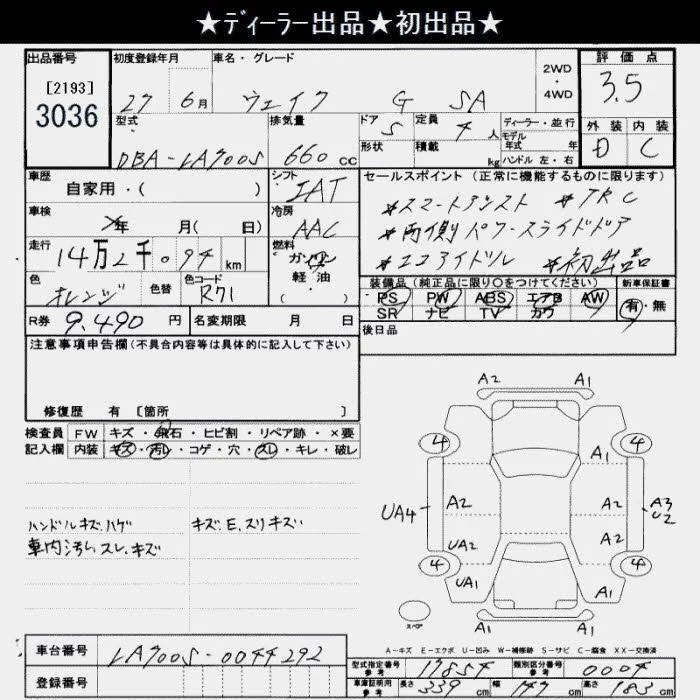 ★ディーラー出品★初出品★
出品番号 初度登録年月 車名・グレード 2WD・4WD 評価点
[2193]
3036 27 6月 ウェイク G SA 3.5
型式 排気量 ドア 定員 ディーラー・並行 外装 内装
DBA-LA700S 660cc 5 4人 モデル年式 年 D C
形状 積載 kg ハンドル 左・右
車歴 シフト セールスポイント (正常に機能するものに限ります)
自家用・( ) IAT *スマートアシスト *TRC
車検 年 月( 日) 冷房 AAC *両側パワースライドドア
走行 14万2千094km 燃料 ガソリン 軽油 ( ) *エコアイドル *初出品
色 オレンジ 色替 色コード R71 装備品 (純正品に限り○をつけてください) 新車保証書
PS PW ABS エアB AW 有・無
SR ナビ TV カワ
R券 9,490円 名変期限 月 日 後日品
注意事項申告欄(不具合内容等は具体的に記入して下さい)
修復歴 有 [箇所 ]
検査員 FW キズ・飛石・ヒビ割・リペア跡・×要
記入欄 内装 キズ・汚レ・コゲ・穴・スレ・キレ・破レ
ハンドルキズ.ハゲ キズ.E.スリキズ
車内汚レ スレ.キズ
A2 A1
4 4
UA4 A2 A2 A3 U2
UA2 A2
4 4
UA1 A1
A1 A1
スペア
A-キズ E-エクボ U-凹み W-補修跡 S-サビ C-腐食 XX-交換済
車台番号 LA700S-0044292
登録番号
型式指定番号 参考 17854 類別区分番号 参考 0004
車庫証明用 参考 長さ 339cm 幅 147cm 高さ 183cm